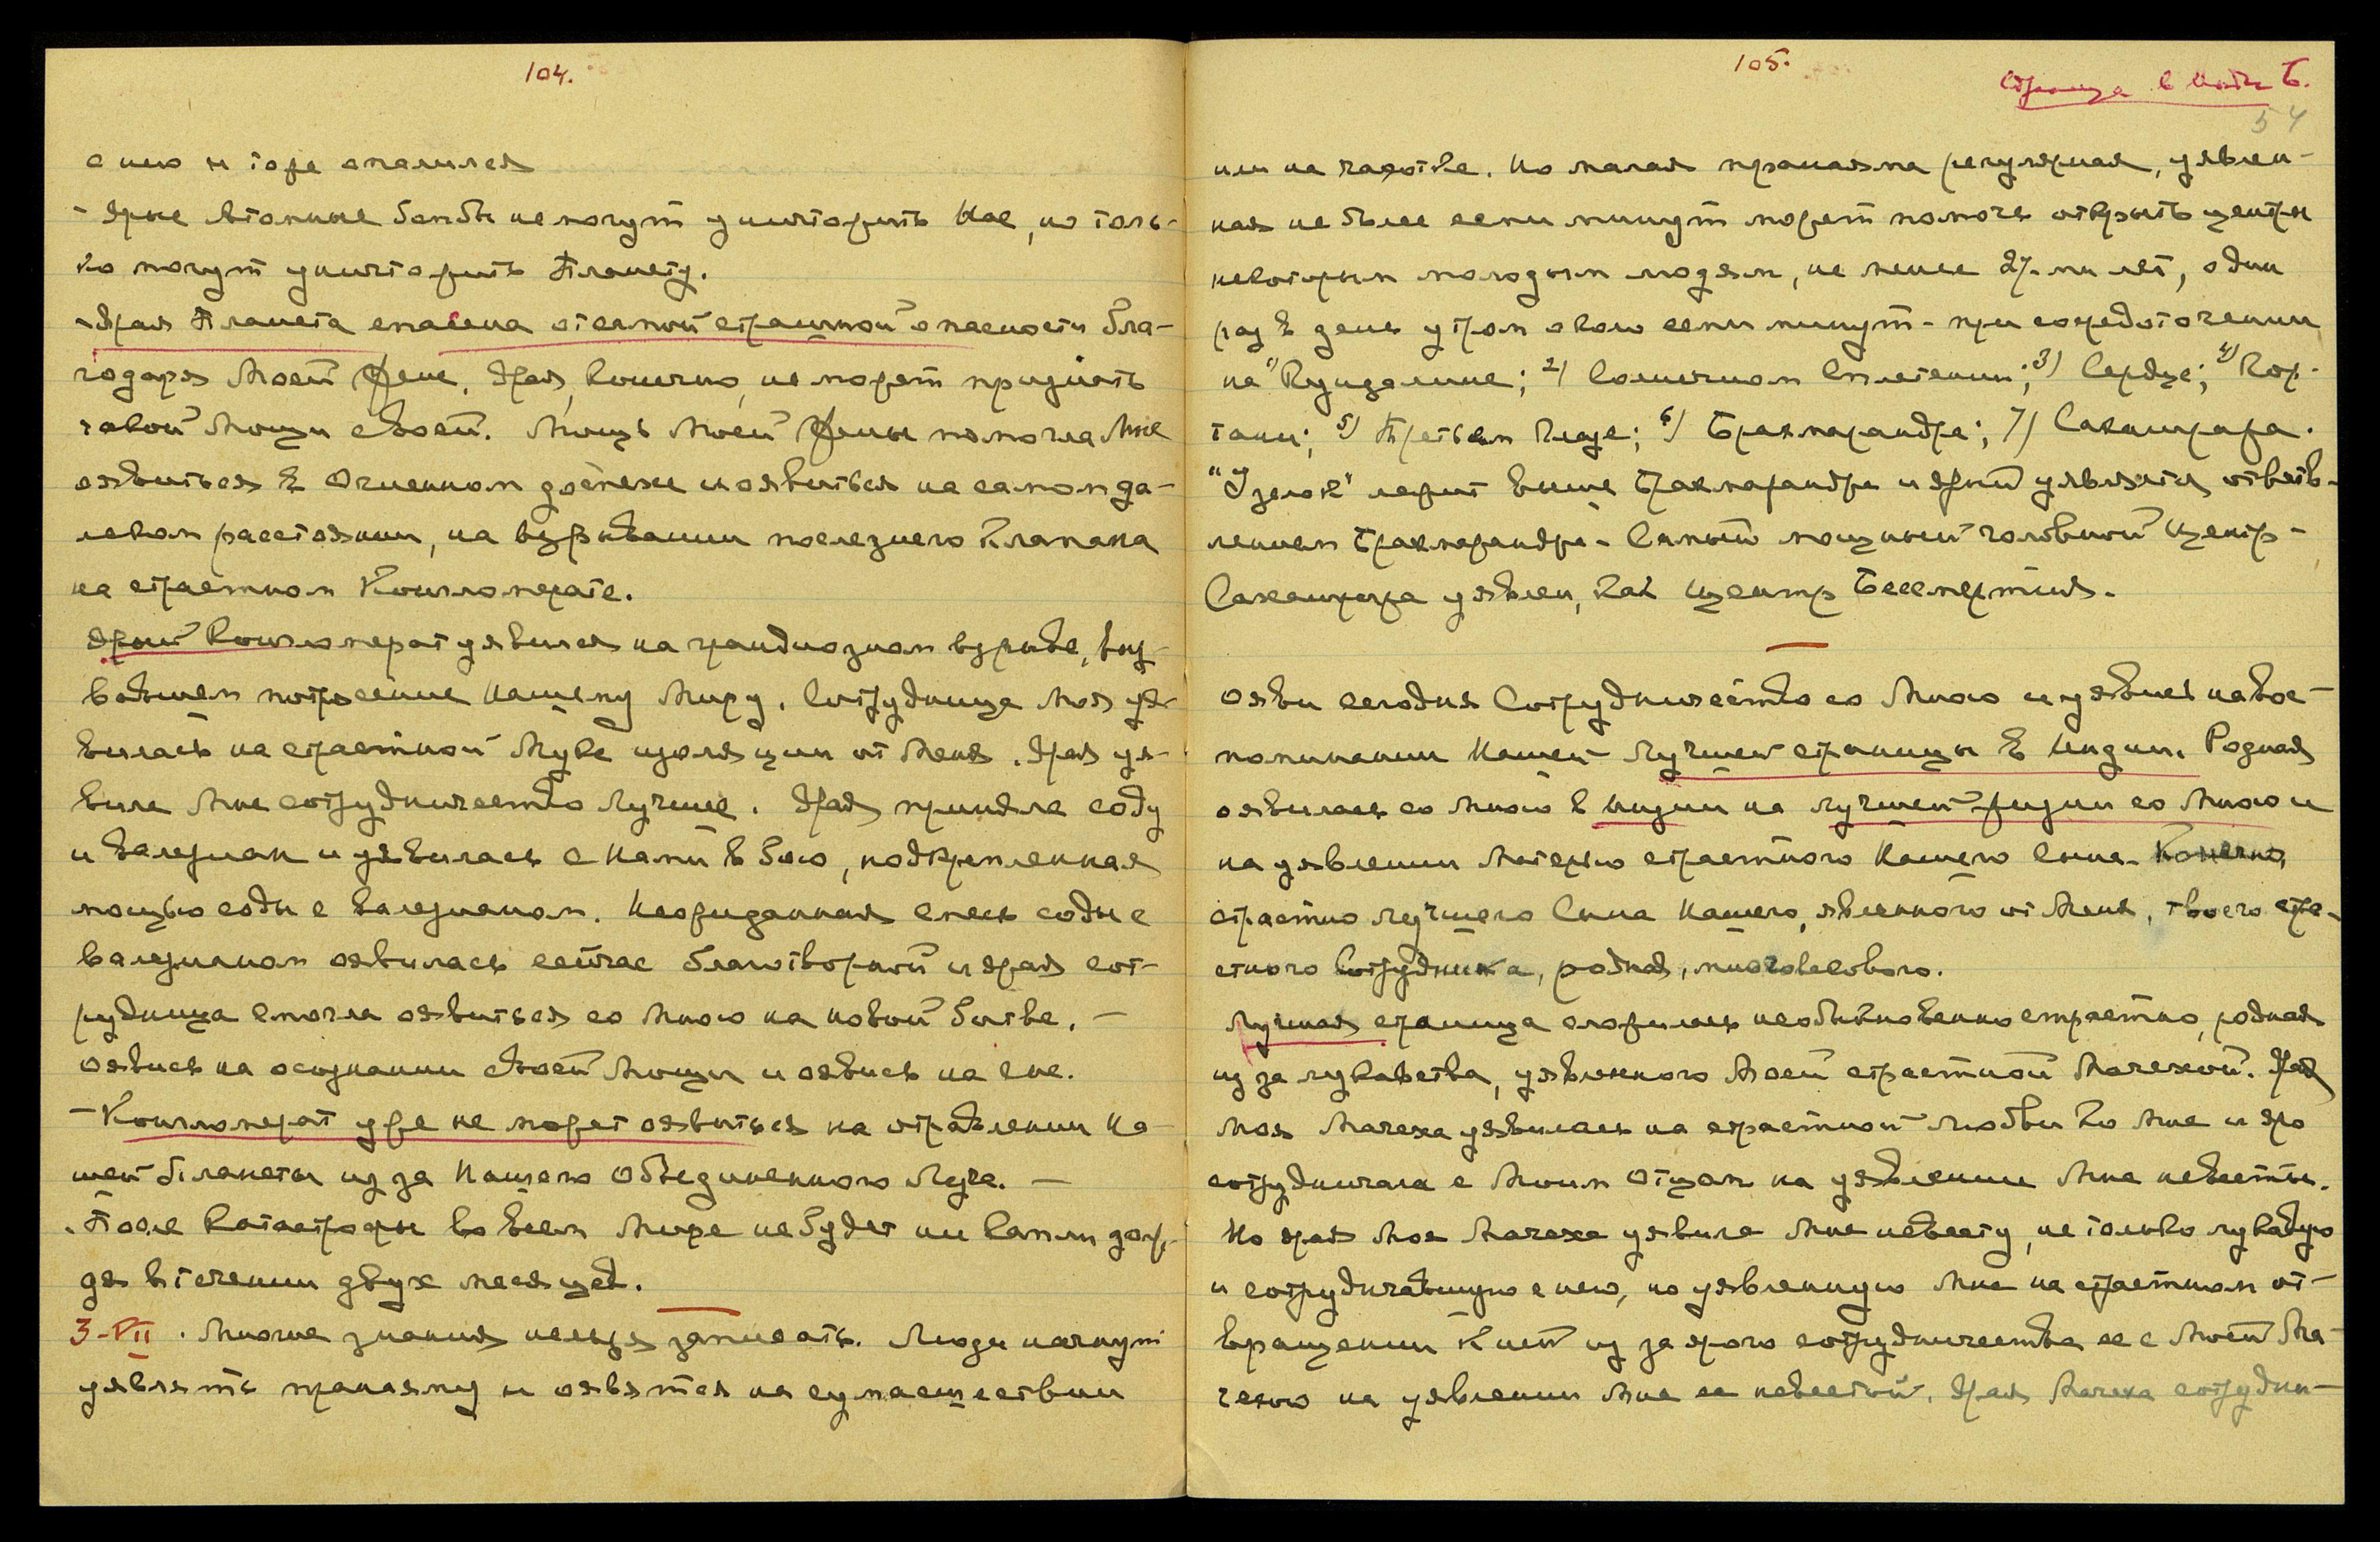 104.
с нею и тоже опалился
- Ярые Атомные бомбы не могут уничтожить Нас, но толь-
ко могут уничтожить Планету.
- Ярая Планета спасена от самой страшной опасности бла-
годаря Моей Жене. Ярая, конечно, не может признать
такой Мощи своей. Мощь Моей Жены помогла Мне
оявиться в Огненном доспехе и оявиться на самом да-
леком расстоянии, на взрывании полезного клапана
на страстном Конгломерате.
Ярый Конгломерат уявился на грандиозном взрыве, выз-
вавшем потрясение Нашему Миру. Сотрудница Моя уя-
вилась на страстной Муке изоляции от Меня. Ярая уя-
вила Мне сотрудничество лучшее. Ярая приняла соду
и валериан и уявилась с Нами в бою, подкрепленная
мощью соды с валерианом. Неожиданная смесь соды с
валерианом оявилась сейчас благотворной и ярая сот-
рудница смогла оявиться со Мною на новой битве. -
Оявись на осознании своей Мощи и оявись на сне.
- Конгломерат уже не может оявиться на отравлении На-
шей Планеты из за Нашего Объединенного Луча. -
. После катастрофы во всем Мире не будет ни капли дож-
дя в течении двух месяцев.
3-VII. Многие знания нельзя записать. Люди начнут
уявлять пранаяму и оявятся на сумасшествии
105.
Страница в Мать
54
или на чахотке. Но малая пранаяма регулярная, уявлен-
ная не более семи минут может помочь открыть центры
некоторым молодым людям, не менее 27-ми лет, один
раз в день утром около семи минут - при сосредоточении
на 1) Кундалине; 2) Солнечном Сплетении; 3) Сердце; 4) Гор-
тани; 5) Третьем Глазе; 6) Брахмарандре; 7) Сахасрара.
"Узелок" лежит выше Брахмарандры и ярый уявляется ответв-
лением Брахмарандры - Самый мощный головной центр -
Сахасрара уявлен, как центр Бессмертия.
Ояви сегодня Сотрудничество со Мною и уявись на вос-
поминании Нашей лучшей страницы в Индии. Родная
оявилась со Мною в Индии на лучшей жизни со Мною и
на уявлении Матерью страстного Нашего Сына. Конечно,
страстно лучшего Сына Нашего, явленного от Меня, твоего стра-
стного Сотрудника, родная, многовекового.
Лучшая страница сложилась необыкновенно страстно, родная
из за лукавства, уявленного Моей страстной Мачехой. Ярая
Моя Мачеха уявилась на страстной любви ко Мне и яро
сотрудничала с Моим Отцом на уявлении Мне невесты.
Но ярая Моя Мачеха уявила Мне невесту, не только лукавую
и сотрудничавшую с нею, но уявленную Мне на страстном от-
вращении к ней из за ярого сотрудничества ее с Моей Ма-
чехою на уявлении Мне ее невестой. Ярая Мачеха сотрудни-